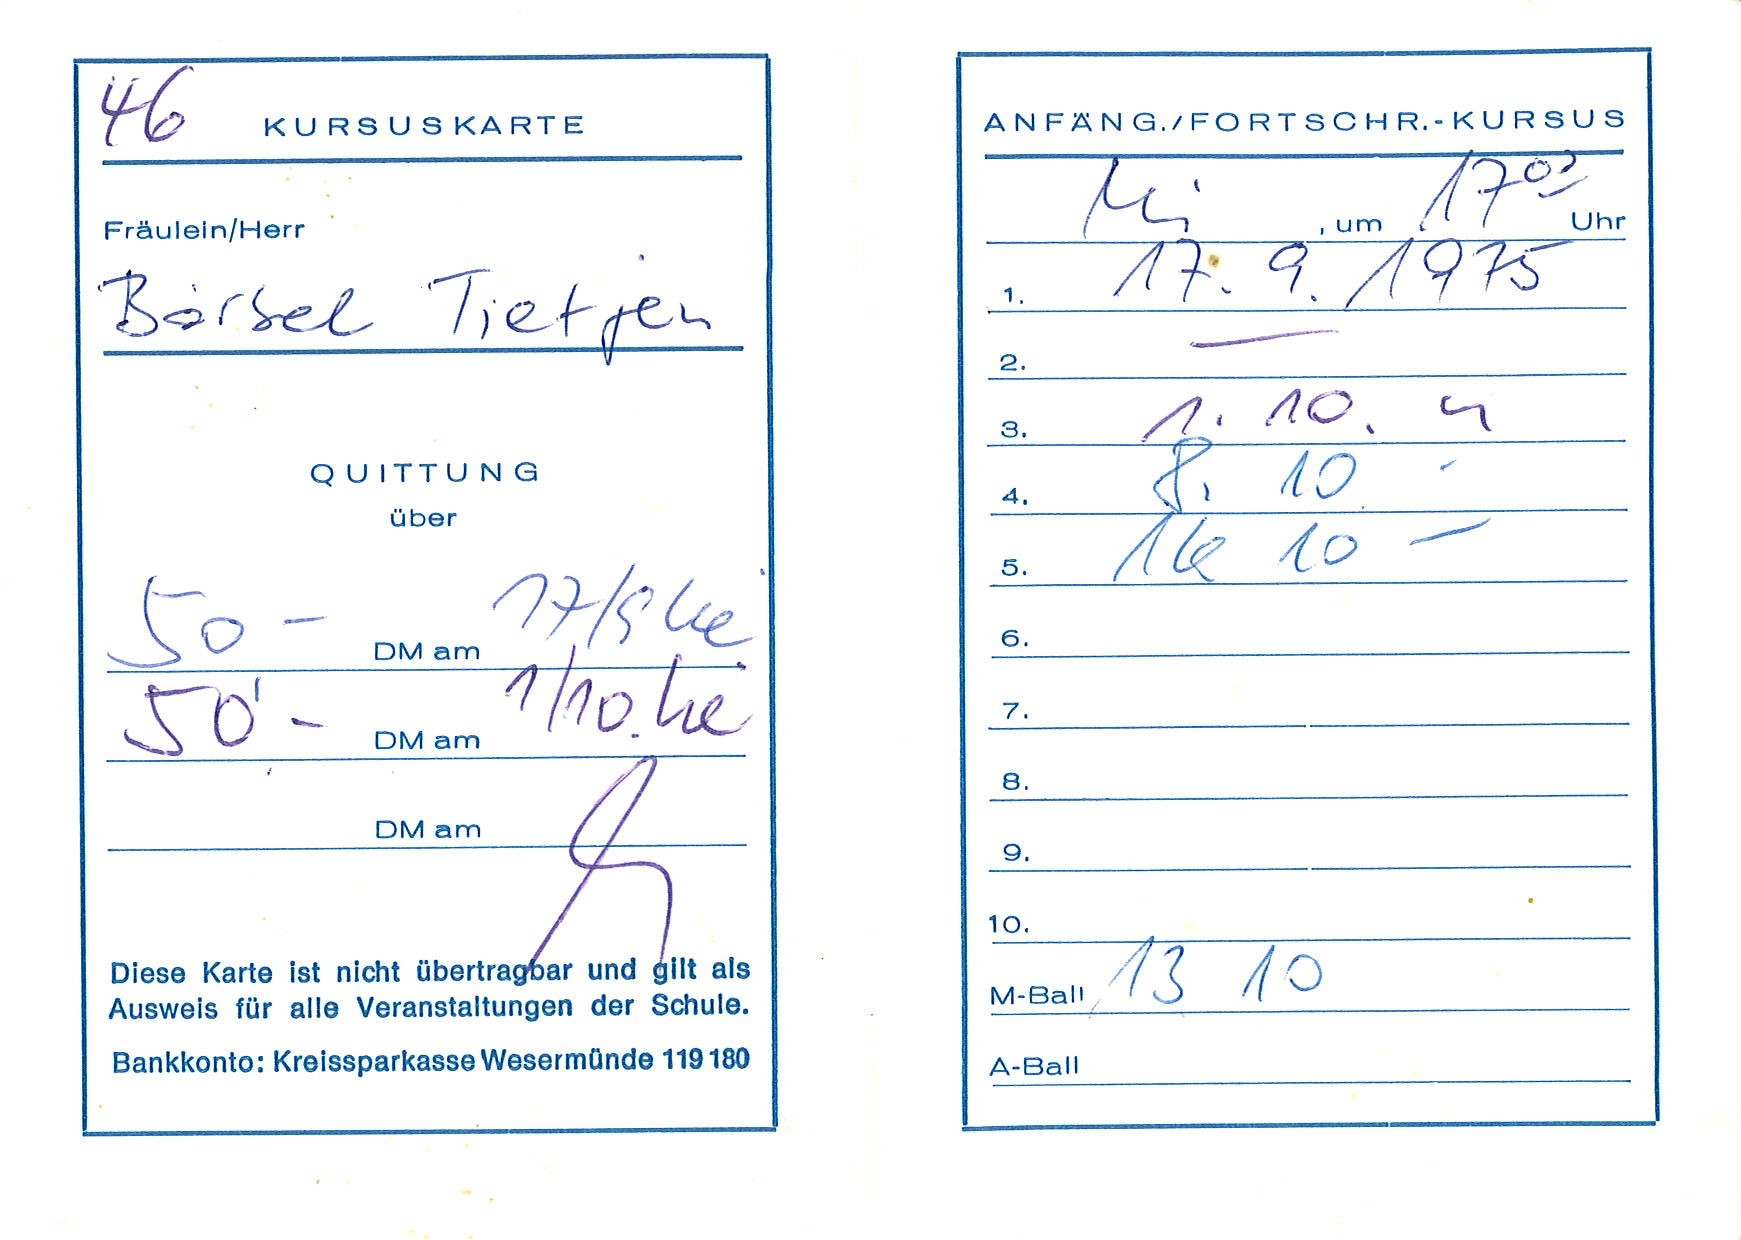 46 KURSUSKARTE
Fräulein/Herr
Bärbel Tietjen
QUITTUNG
über
50 - DM am 17/9
50 - DM am 1/10.
DM am
Diese Karte ist nicht übertragbar und gilt als
Ausweis für alle Veranstaltungen der Schule.
Bankkonto: Kreissparkasse Wesermünde 119 180
ANFÄNG./FORTSCHR.-KURSUS
Mi , um 17 00 Uhr
1. 17. 9. 1975
2. —
3. 1. 10.
4. 8. 10 -
5. 10 -
6.
7.
8.
9.
10.
M-Ball 13 10
A-Ball